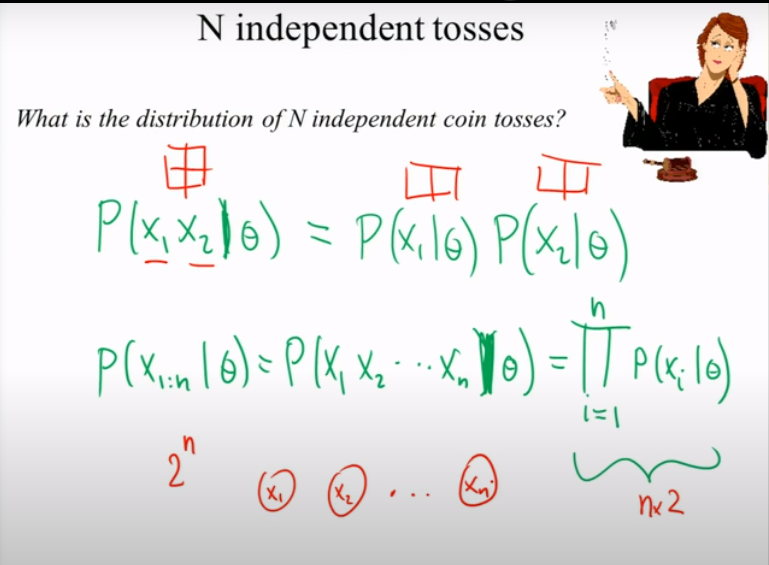 N independent tosses
What is the distribution of N independent coin tosses?
P(x₁ x₂ | θ) = P(x₁|θ) P(x₂|θ)
P(x₁:ₙ | θ) = P(x₁ x₂ ⋯ xₙ | θ) = ∏ᵢ₌₁ⁿ P(xᵢ|θ)
2ⁿ x₁ x₂ ... xₙ n×2